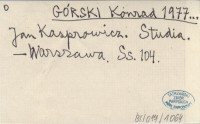 0
GÓRSKI Konrad 1977...
Jan Kasprowicz. Studia.
—Warszawa. Ss. 104.